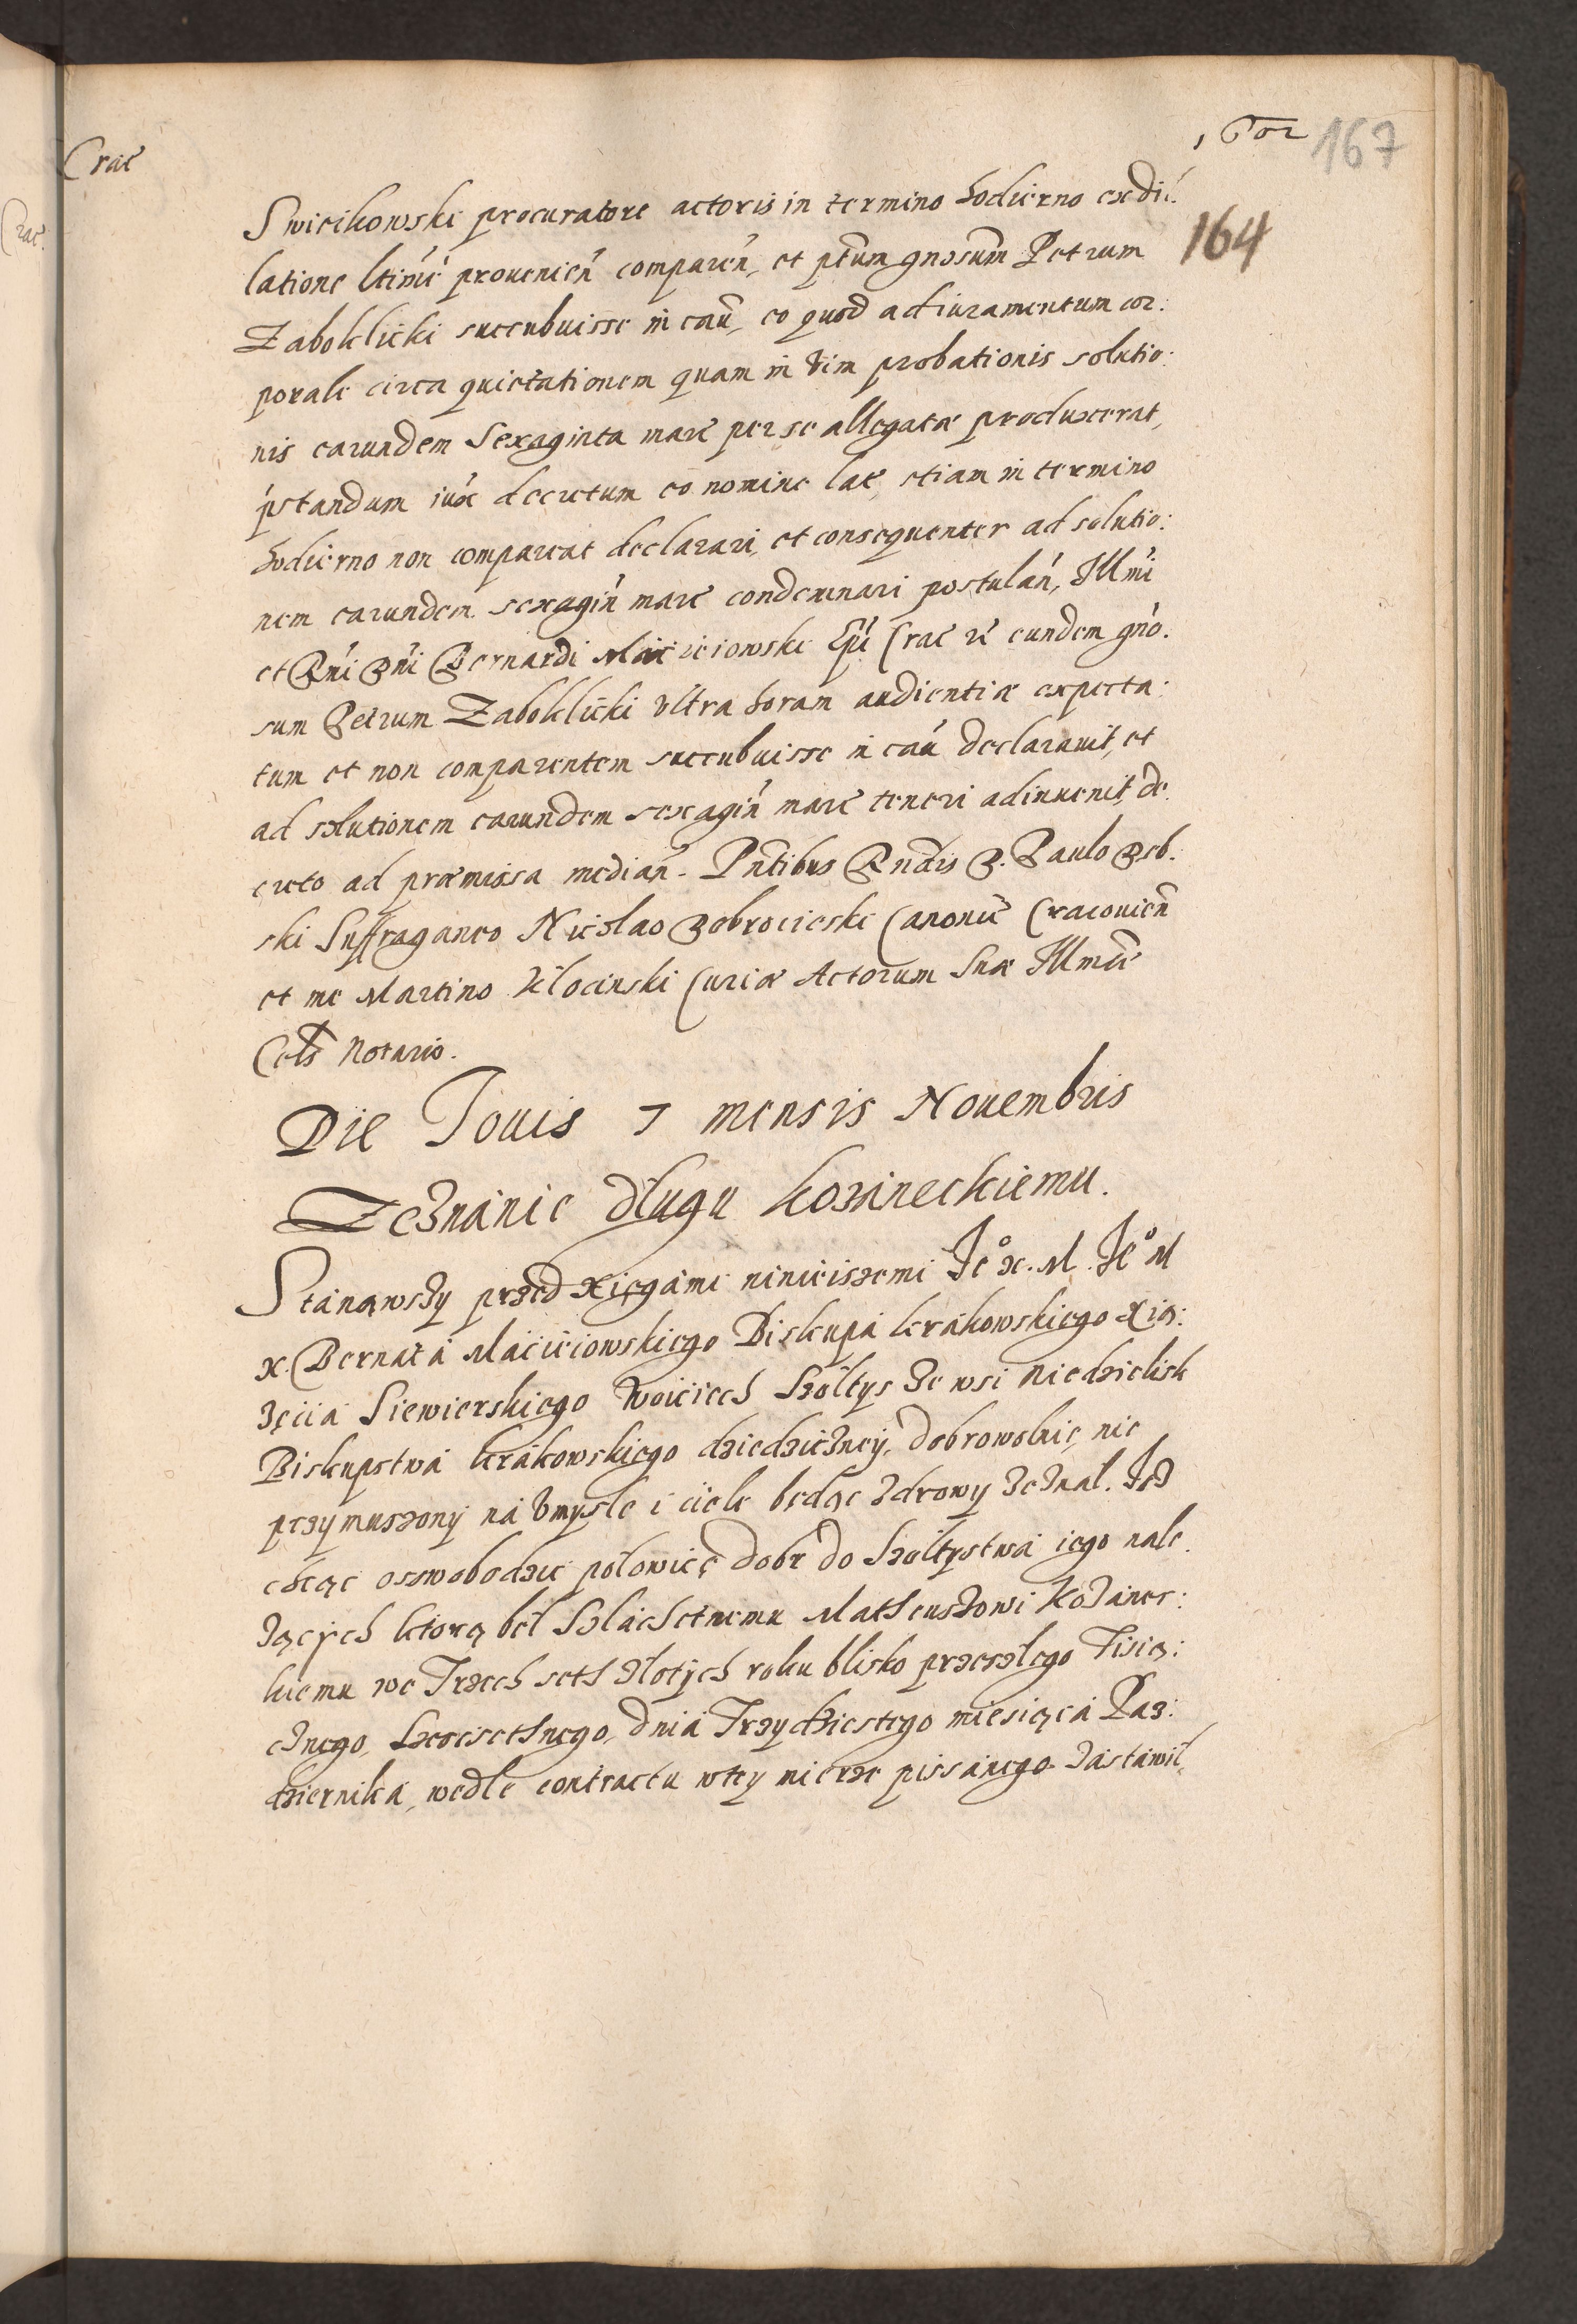 1602 167
164
Crac̃
Crac̃.
Swiecikowski procuratore actoris in termino hodierno ex di:
latione l̃timẽ prouenień comparẽn, et p̃tum gnosum Petrum
Zaboklicki succubuisse in cau͂, eo quod ad iuramentum cor:
porale circa quietationem quam in vim probationis solutio:
nis earundem Sexaginta marc̃ per se allegatæ produxerat,
p̃standum iux̃ decretum eo nomine lat̃, etiam in termino
hodierno non compareat declarari, et consequenter ad solutio:
nem earundem sexagiń marc̃ condemnari postulań, Illm̃i
et Rñi Dñi Bernardi Macieiowski Ep̃i Crac̃ r̃ eundem gño.
sum Petrum Zaboklicki vltra horam audientiæ expecta:
tum et non comparentem succubuisse in cau͂ declarauit, et
ad solutionem earundem sexagiń marc̃ teneri adinuenit, de.
creto ad præmissa mediań. Pñtibus Rndis D. Paulo Deb.
ski Suffraganeo Nicolao Dobrocieski Canonic̃ Cracovień
et me Martino Klocinski Curiæ Actorum Suæ Illmæ
Cels̃ Notario.
Die Jouis 7 mensis Nouembris
Zeznánie długu kozáneckiemu.
Stánąwszy przed xięgámi ninieiszemi Je° x. M. Je° M
x. Bernatá Máciciowskiego Biskupá krákowskiego xią:
żęciá Siewierskiego Woiciech Szołtys ze wsi Niedzielisk
Biskupstwá krákowskiego dziedziczney, dobrowolnie, nie
przymuszony ná vmysle i ciele będąc zdrowy zeznał. Jeż
chcąc oswobodzic połowicę dobr do Szołtystwá iego nale.
żących ktorą beł Szláchetnemu Matheuszowi Kozánec:
kiemu we Trzech seth złotych roku blisko przeszłego Tisią:
cznego, Szescsethnego, dniá Trzydziestego miesiącá Paz:
dzierniká, wedle contractu w tey mierze pissánego zástáwił,